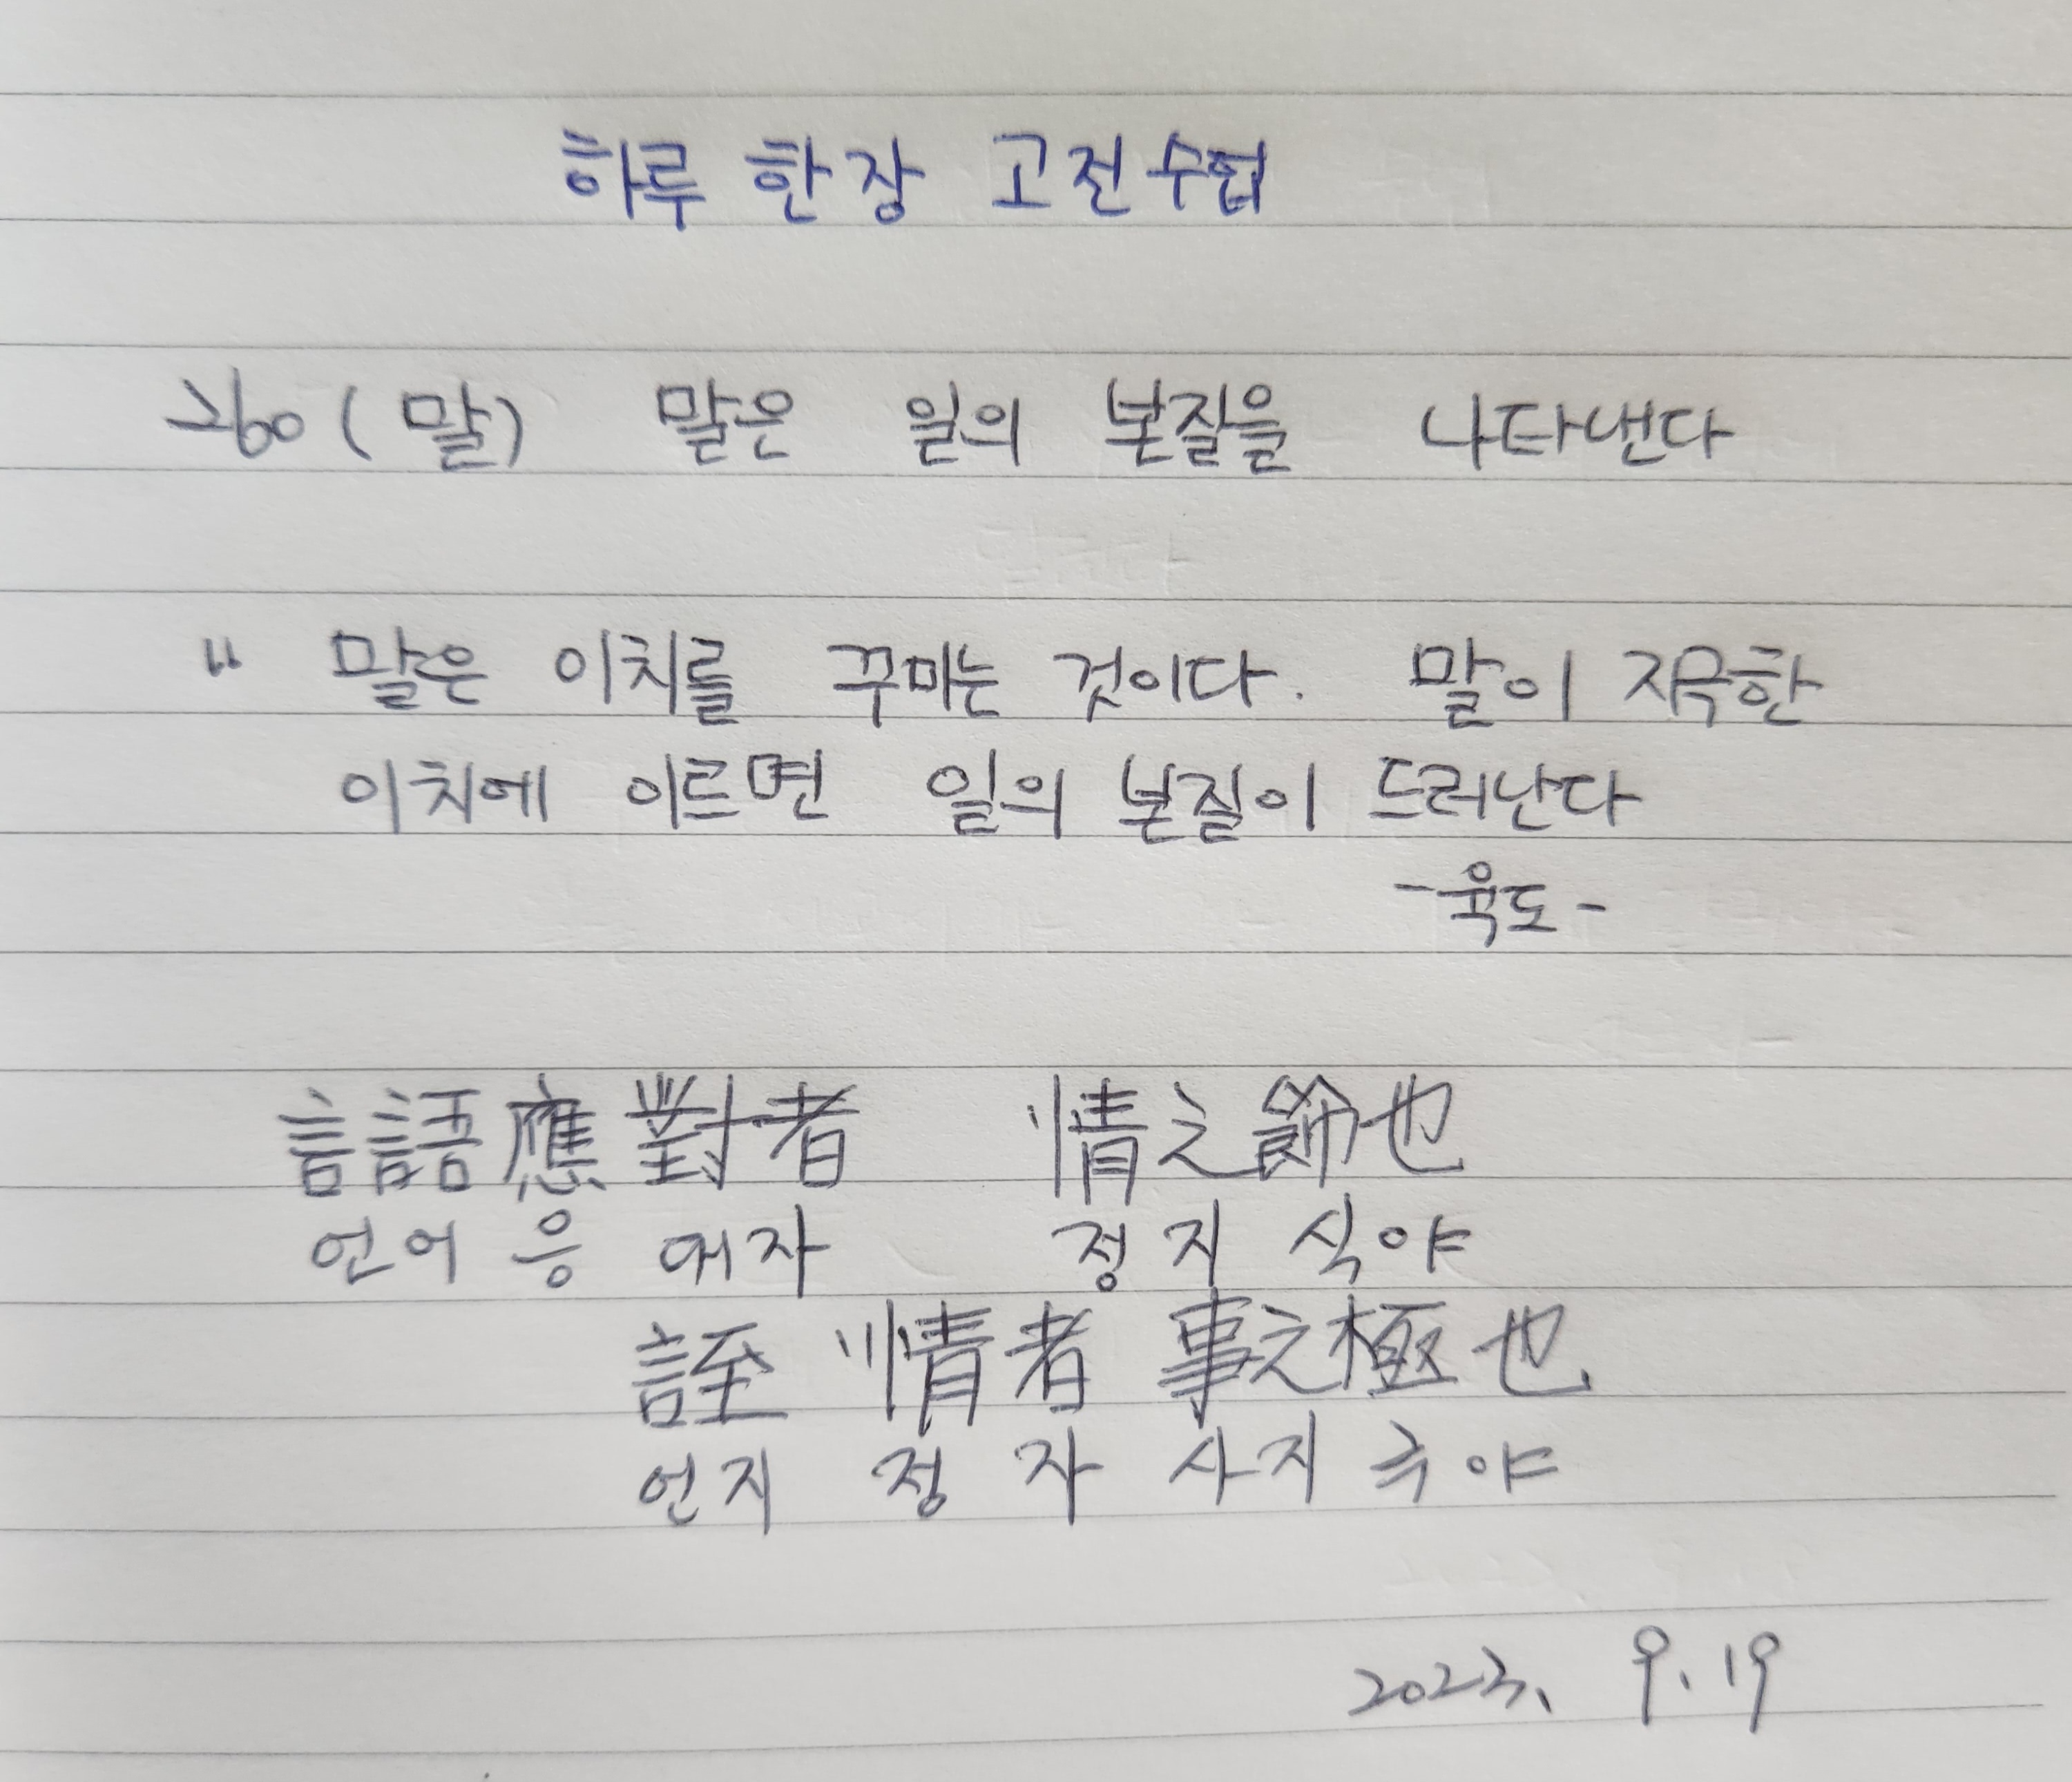 하루 한장 고전수업
260 (말) 말은 일의 본질을 나타낸다
" 말은 이치를 꾸미는 것이다. 말이 지극한
이치에 이르면 일의 본질이 드러난다
-육도-
言語應對者 情之飾也
언어 응 대자 정지 식야
言至 情者 事之極也
언지 정 자 사지 극야
2023. 9. 19